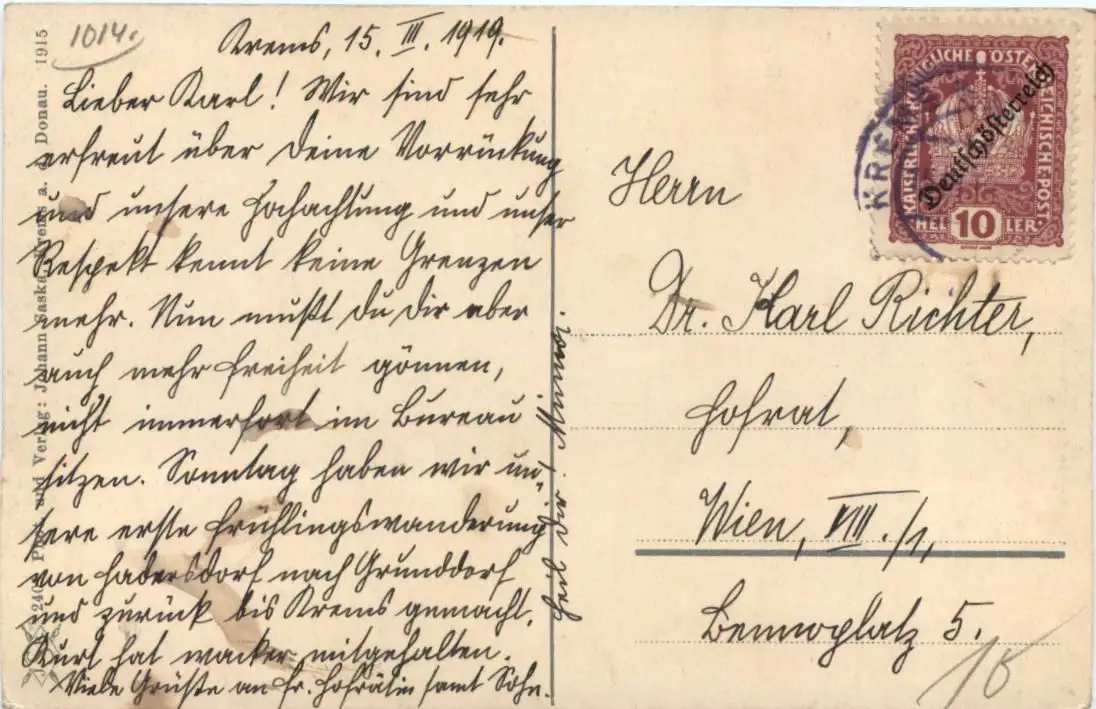 1014.
Krems, 15. III. 1919.
Lieber Karl! Wir sind sehr
erfreut über Deine Vorrückung
und unsere Hochachtung und unser
Respekt kennt keine Grenzen
mehr. Nun mußt Du Dir aber
auch mehr Freiheit gönnen,
nicht immerfort im Bureau
sitzen. Sonntag haben wir un-
sere erste Frühlingswanderung
von Hadersdorf nach Grunddorf
und zurück bis Krems gemacht.
Kurt hat wacker mitgehalten.
Viele Grüße an Fr. Hofrätin samt Sohn.
Heil Dir!
Herrn
Dr. Karl Richter,
Hofrat,
Wien, VIII./1,
Bennoplatz 5.
KAISERLICHKÖNIGLICHE ÖSTERREICHISCHE POST.
Deutschösterreich
10
HELLER.
KREMS
Verlag: Johann Saska, Krems a. d. Donau. 1915